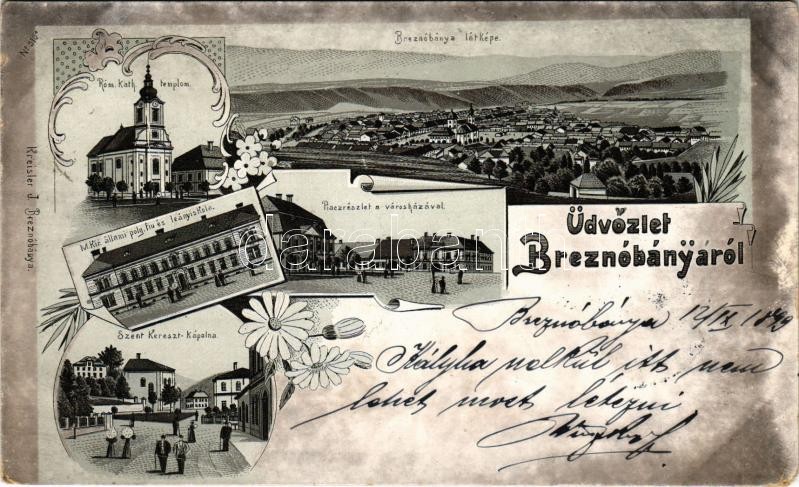 No 516
Breznóbánya látképe.
Róm. Kath. templom.
Kreisler J. Breznóbánya.
M. Kir. állami polg. fiu és leányiskola.
Piaczrészlet a városházával.
Üdvözlet
Breznóbányáról
Szent Kereszt-Kápolna.
Breznóbánya 12/IX 1899
Kályha nélkül itt nem
lehet most létezni
darabanth